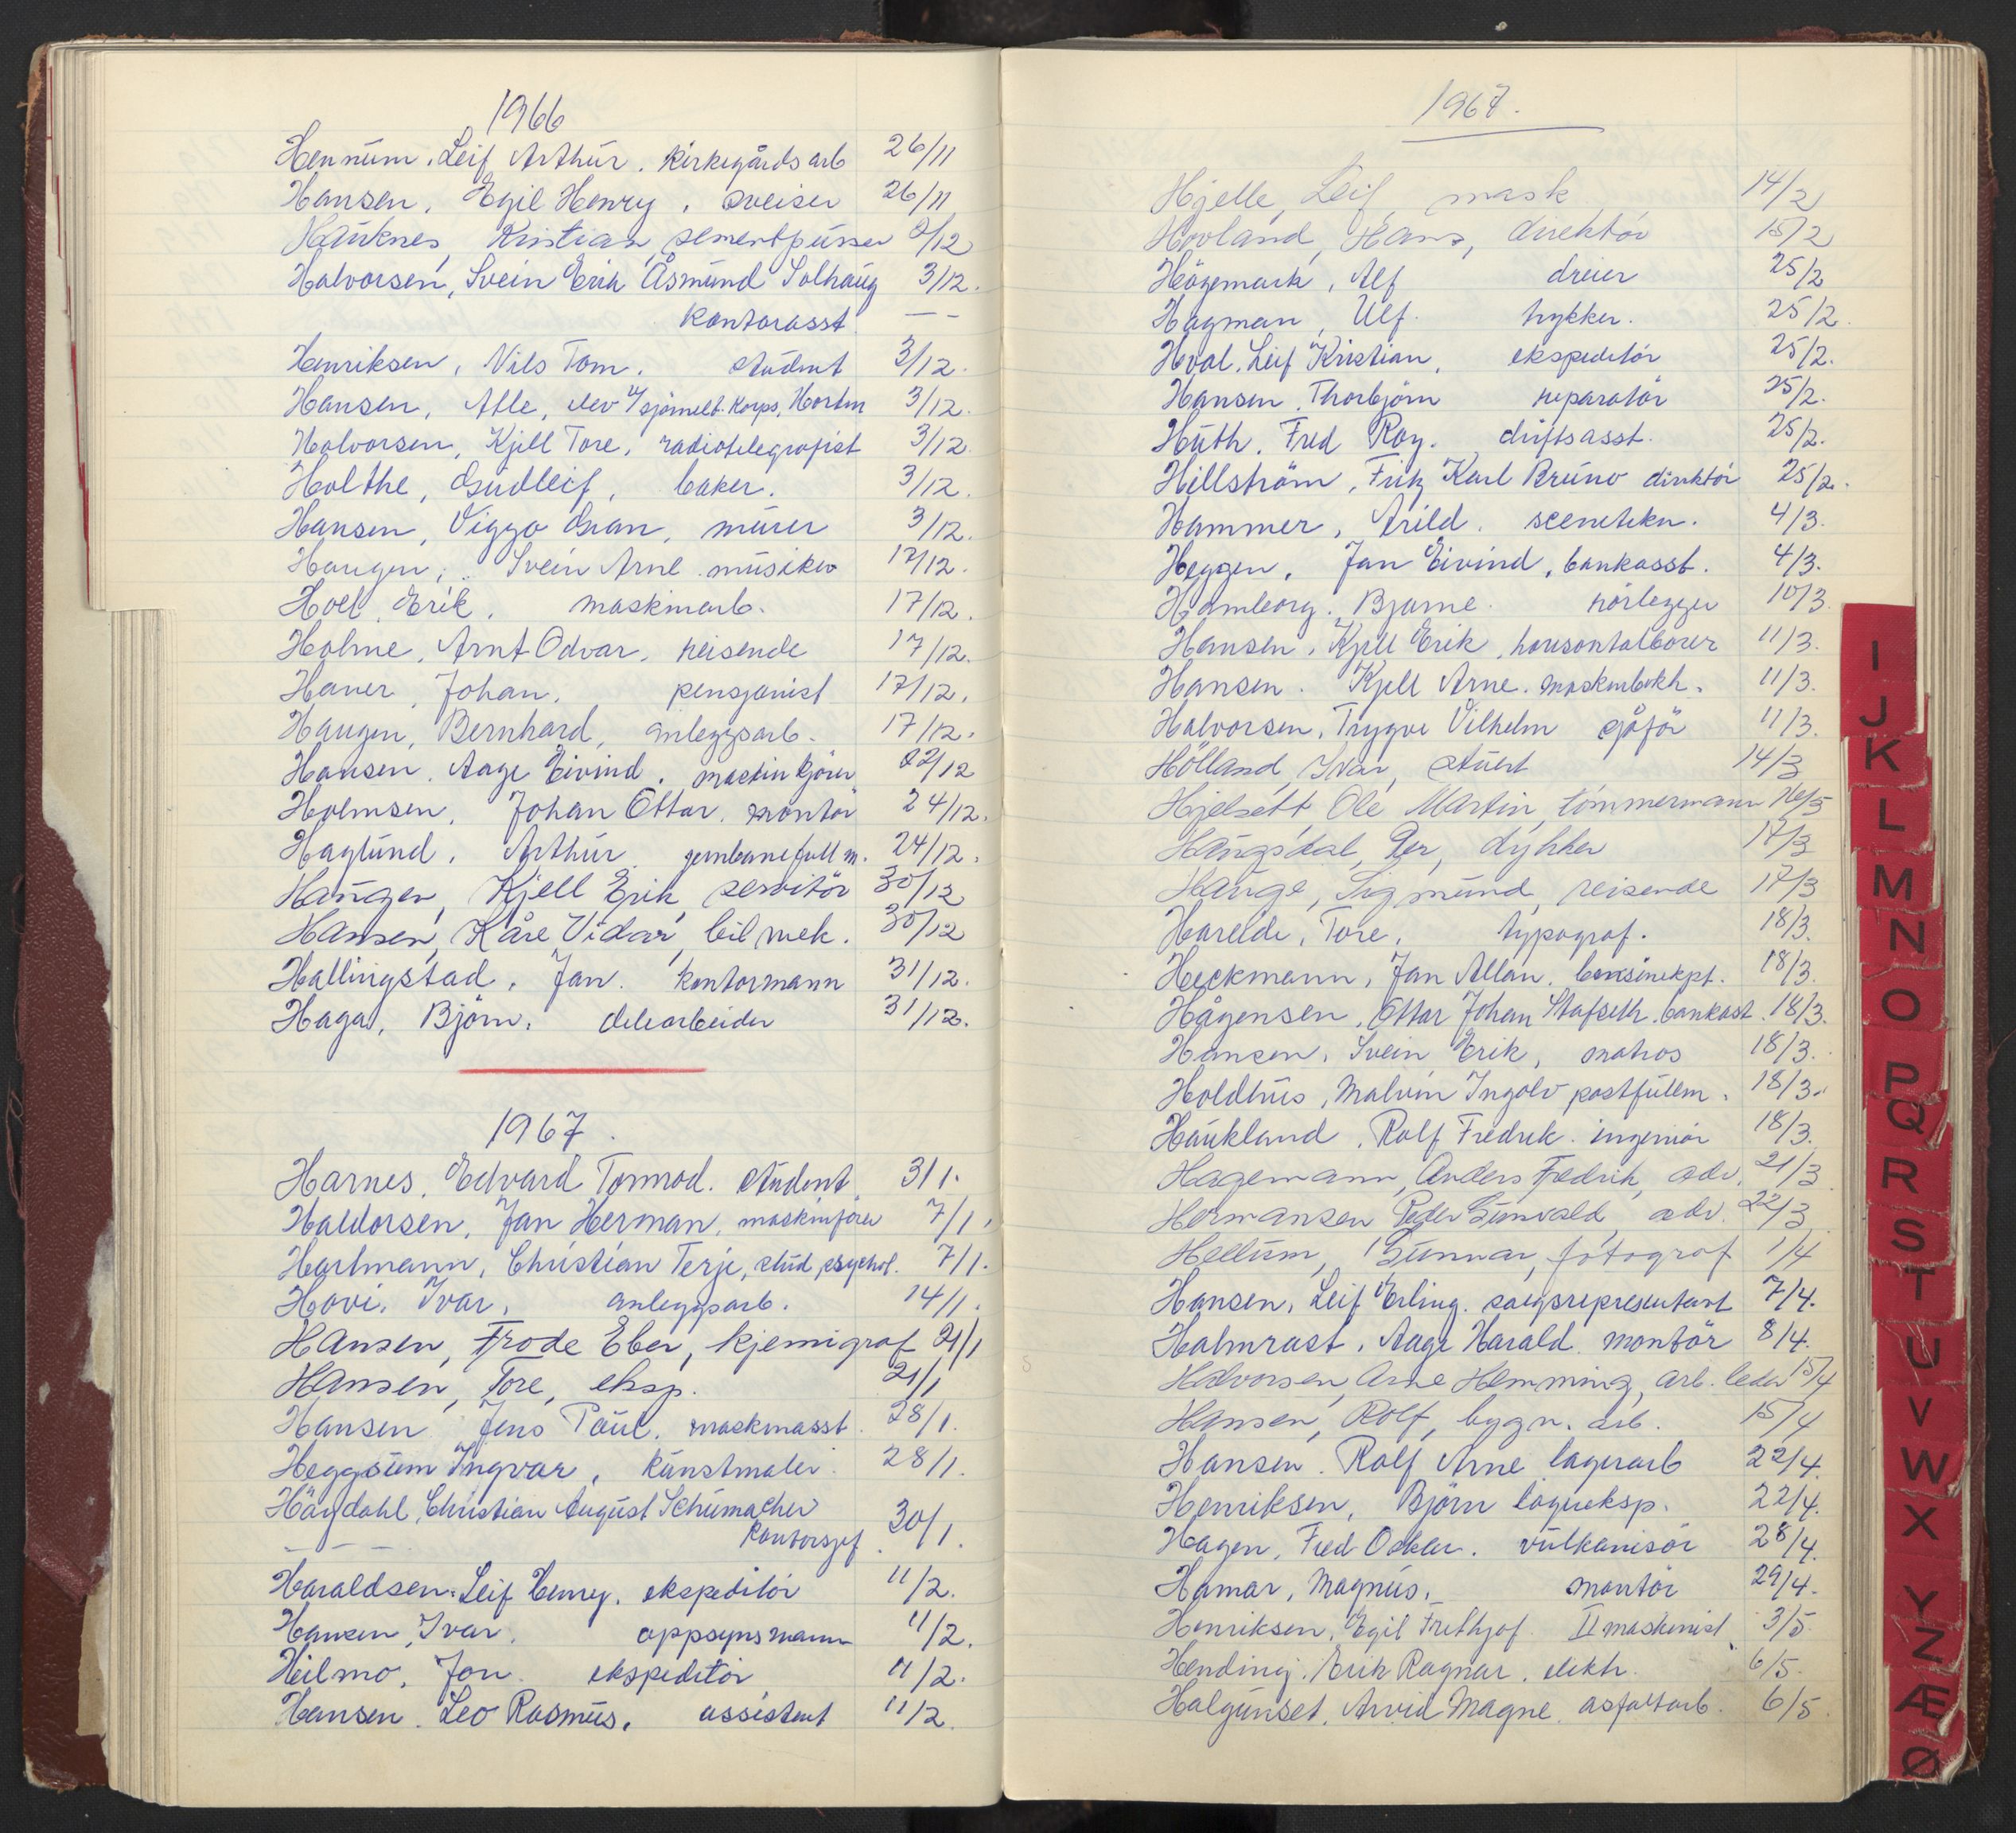 1966
Hennum, Leif Arthur. kirkegårdsarb 26/11
Hansen, Egil Henry, sveiser 26/11
Hauknes, Kristian, sementpusser 2/12
Halvorsen, Svein Erik Åsmund Solhaug 3/12.
kontorasst. — –
Henriksen, Nils Tom. student 3/12.
Hansen, Atle, elev v/sjømilt. korps, Horten 3/12.
Halvorsen, Kjell Tore, radiotelegrafist 3/12.
Holthe, Gudleif, baker. 3/12.
Hansen, Viggo Gran, murer 3/12.
Haugen, Svein Arne. musiker 17/12.
Hoel, Erik, maskinarb. 17/12.
Holme, Arnt Odvar, reisende 17/12.
Haner, Johan, pensjonist 17/12.
Haugen, Bernhard, anleggsarb. 17/12.
Hansen, Aage Eivind. maskinkjører 22/12
Holmsen, Johan Ottar, montör 24/12.
Haglund, Arthur jernbanefullm. 24/12.
Haugen, Kjell Erik, servitör 30/12
Hansen, Kåre Vidar, bilmek. 30/12
Hallingstad, Jan. kontormann 31/12.
Haga, Björn. delearbeider 31/12.
1967.
Harnes, Edvard Tormod. student 3/1.
Haldorsen, Jan Herman, maskinfører 7/1.
Hartmann, Christian Terje, stud psychol. 7/1.
Hovi, Ivar, anleggsarb. 14/1.
Hansen, Frode Eber, kjemigraf 21/1
Hansen, Tore, eksp. 21/1
Hansen Jens Poul. maskinasst. 28/1.
Heggsum Ingvar, kunstmaler. 28/1.
Hägdahl, Christian August Schumacher
– – – kontorsjef. 30/1.
Haraldsen, Leif Henry. ekspeditör 11/2.
Hansen, Ivar, oppsynsmann 11/2.
Heilmo, Jon. ekspeditör 11/2.
Hansen. Leo Rasmus, assistent 11/2.
1967.
Hjelle, Leif mask 14/2
Hovland, Hans, direktör 15/2
Högemark, Alf dreier 25/2
Hagman, Ulf. trykker. 25/2.
Hval, Leif Kristian, ekspeditör 25/2.
Hansen, Thorbjörn reparatör 25/2.
Huth, Fred Roy. driftsasst. 25/2.
Hillström, Fritz Karl Bruno direktör 25/2.
Hammer, Arild. scenetekn. 4/3.
Heggen, Jan Eivind, bankasst. 4/3.
Hamborg, Bjarne. rörlegger 10/3.
Hansen, Kjell Erik, horisontalborer 11/3.
Hansen. Kjell Arne. maskinbokh. 11/3.
Halvorsen, Trygve Vilhelm sjåför 11/3.
Hölland, Ivar, stuert 14/3
Hjelsett, Ole Martin, tömmermann 16/3
Haugsdal, Per, dykker 17/3
Hauge, Sigmund, reisende 17/3
Hareide, Tore, typograf. 18/3.
Heckmann, Jan Allan. bensinekpt. 18/3.
Hågensen, Ottar Johan Stafseth. bankast. 18/3.
Hansen, Svein Erik, matros 18/3.
Holdhus, Malvin Ingolv postfullm. 18/3.
Haukland, Rolf Fredrik. ingeniör 18/3.
Hagemann, Anders Fredrik, adv. 21/3
Hermansen Peder Gunvald, adv. 22/3
Hellum, Gunnar, fotograf 1/4
Hansen, Leif Erling. salgsrepresentant 7/4.
Halmrast, Aage Harald. montör 8/4.
Halvorsen, Arne Hemming, arb. leder 15/4
Hansen, Rolf, bygn. arb. 15/4
Hansen. Rolf Arne lagerarb 22/4.
Henriksen, Björn lagereksp. 22/4.
Hagen, Fred Oskar. vulkanisör 28/4.
Hamar, Magnus. montör 29/4.
Henriksen, Egil Frithjof. II maskinist 3/5.
Hending. Erik Ragnar. elektr. 6/5.
Halgunset, Arvid Magne. asfaltarb. 6/5.
I
J
K
L
M
N
O
P
Q
R
S
T
U
V
W
X
Y
Z
Æ
Ø